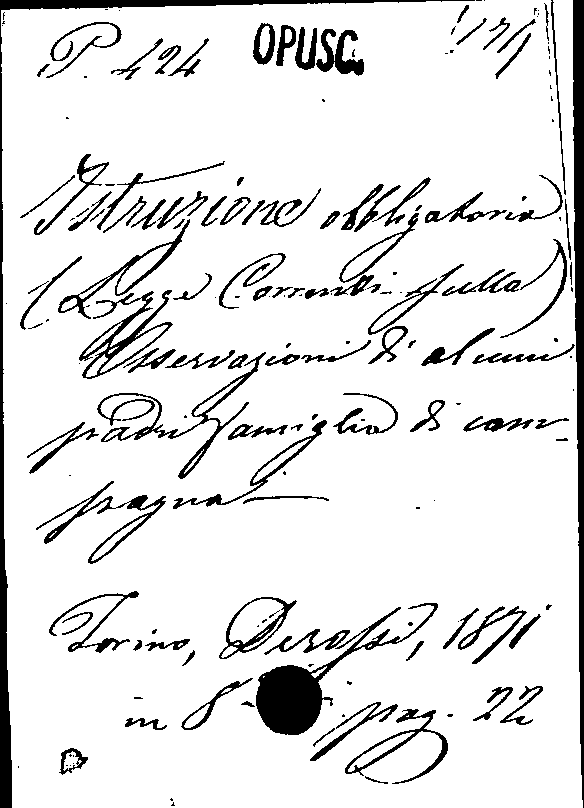 P. 424 OPUSC. 171
Istruzione obbligatoria
(Legge Correnti sulla)
Osservazioni di alcuni
padri famiglia di cam-
pagna
Torino, Derossi, 1871
in 8° pag. 22